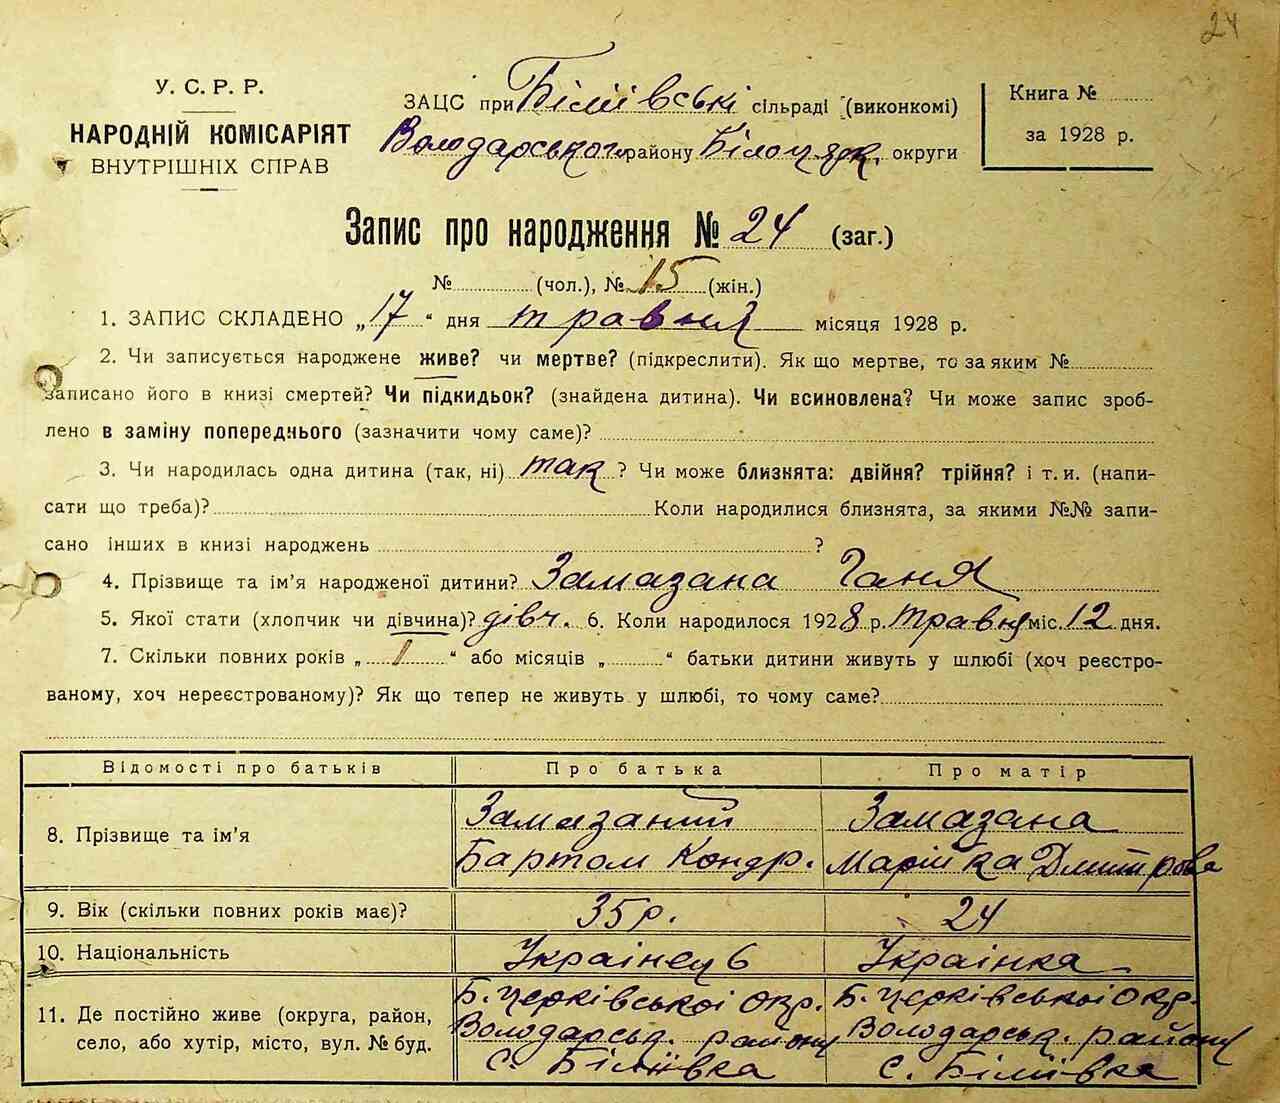 24
У. С. Р. Р.
НАРОДНІЙ КОМІСАРІЯТ
ВНУТРІШНІХ СПРАВ
ЗАЦС при Біліївські сільраді (виконкомі)
Володарського району Білоцерк. округи
Книга №
за 1928 р.
Запис про народження № 24 (заг.)
№ (чол.), № 15 (жін.)
1. ЗАПИС СКЛАДЕНО „17“ дня травня місяця 1928 р.
2. Чи записується народжене живе? чи мертве? (підкреслити). Як що мертве, то за яким №
записано його в книзі смертей? Чи підкидьок? (знайдена дитина). Чи всиновлена? Чи може запис зроб-
лено в заміну попереднього (зазначити чому саме)?
3. Чи народилась одна дитина (так, ні) так? Чи може близнята: двійня? трійня? і т. и. (напи-
сати що треба)? Коли народилися близнята, за якими №№ запи-
сано інших в книзі народжень ?
4. Прізвище та ім'я народженої дитини? Замазана Ганя
5. Якої стати (хлопчик чи дівчина)? дівч. 6. Коли народилося 1928 р. травня міс. 12 дня.
7. Скільки повних років „1“ або місяців „ “ батьки дитини живуть у шлюбі (хоч реєстро-
ваному, хоч нереєстрованому)? Як що тепер не живуть у шлюбі, то чому саме?
Відомості про батьків Про батька Про матір
8. Прізвище та ім'я
Замазаний
Бартом Кондр.
Замазана
Марійка Дмитрова
9. Вік (скільки повних років має)? 35 р. 24
10. Національність Українець Українка
11. Де постійно живе (округа, район,
село, або хутір, місто, вул. № буд.
Б. Церківської окр.
Володарськ. району
с. Біліївка
Б. Церківської окр.
Володарськ. району
с. Біліївка